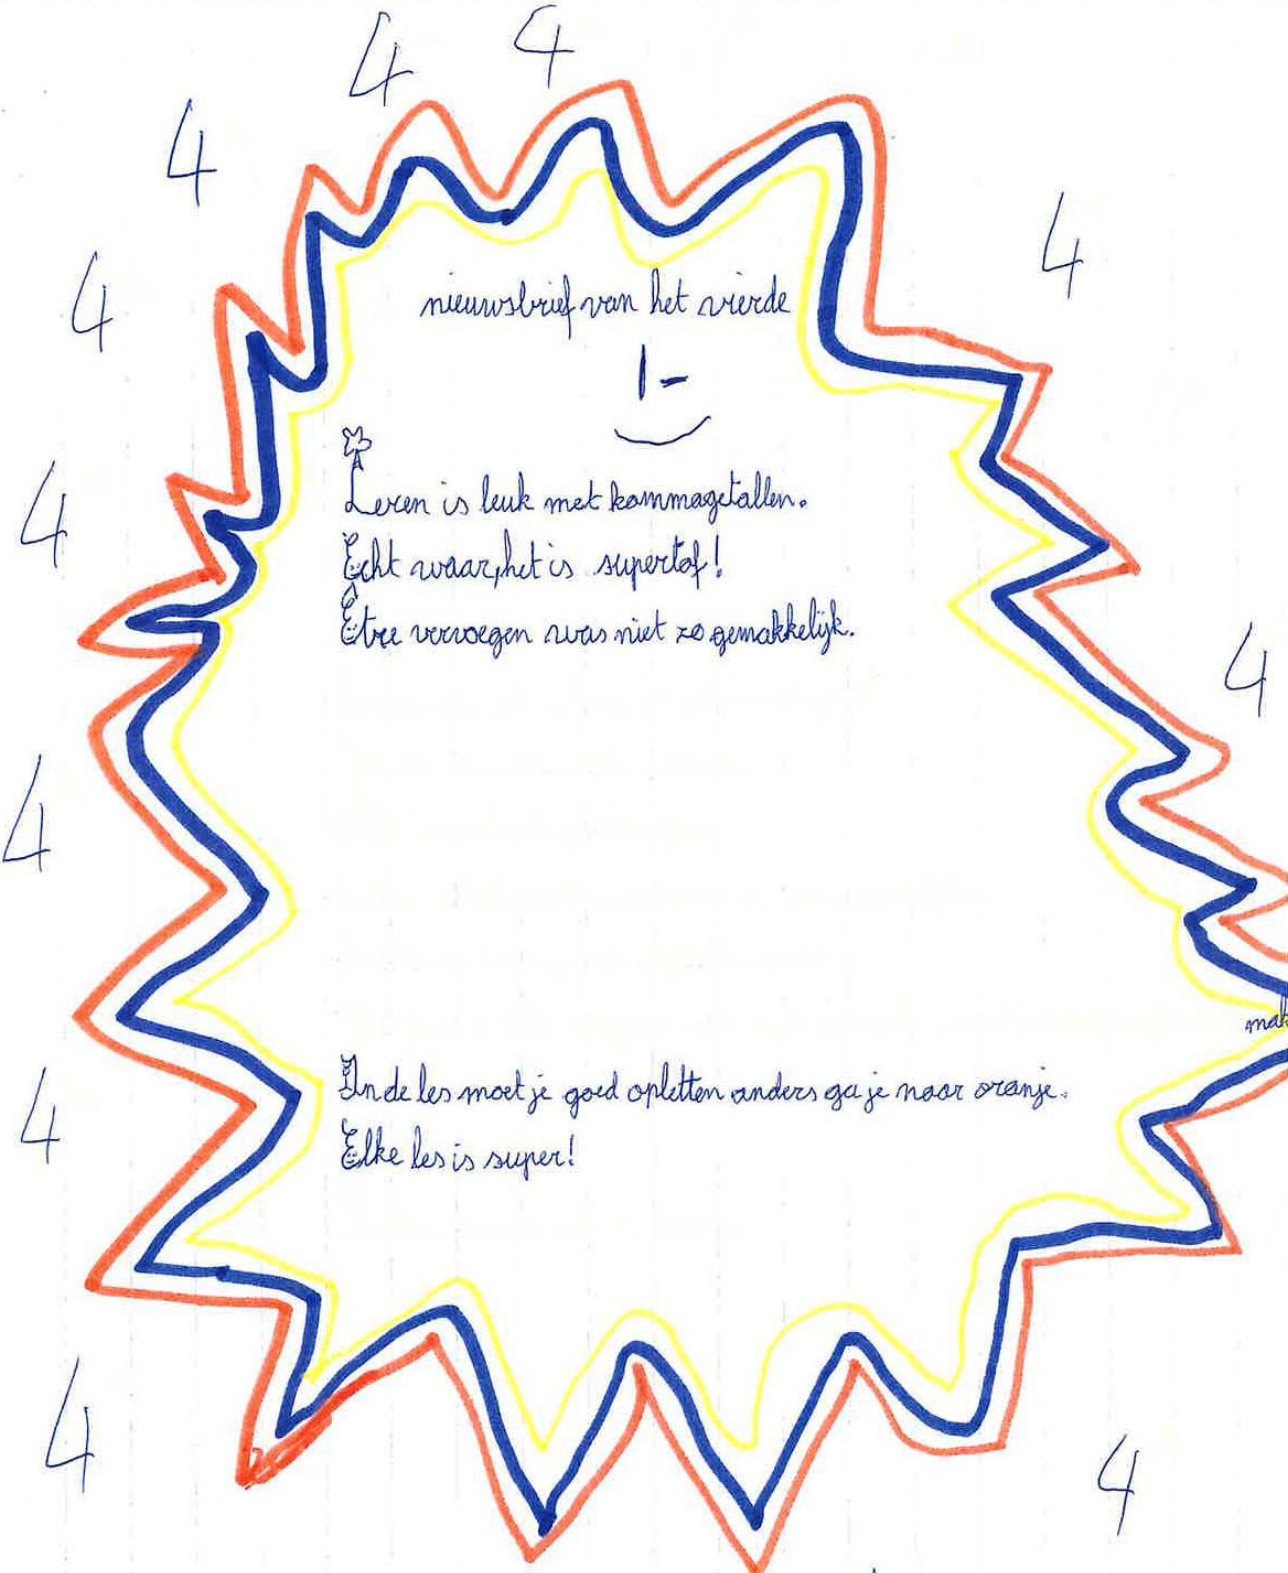 4 4
4
4
4
nieuwsbrief van het vierde
4
Leren is leuk met kommagetallen.
Echt waar, het is supertof!
Être vervoegen was niet zo gemakkelijk.
4
4
In de les moet je goed opletten anders ga je naar oranje.
4
Elke les is super!
4
4